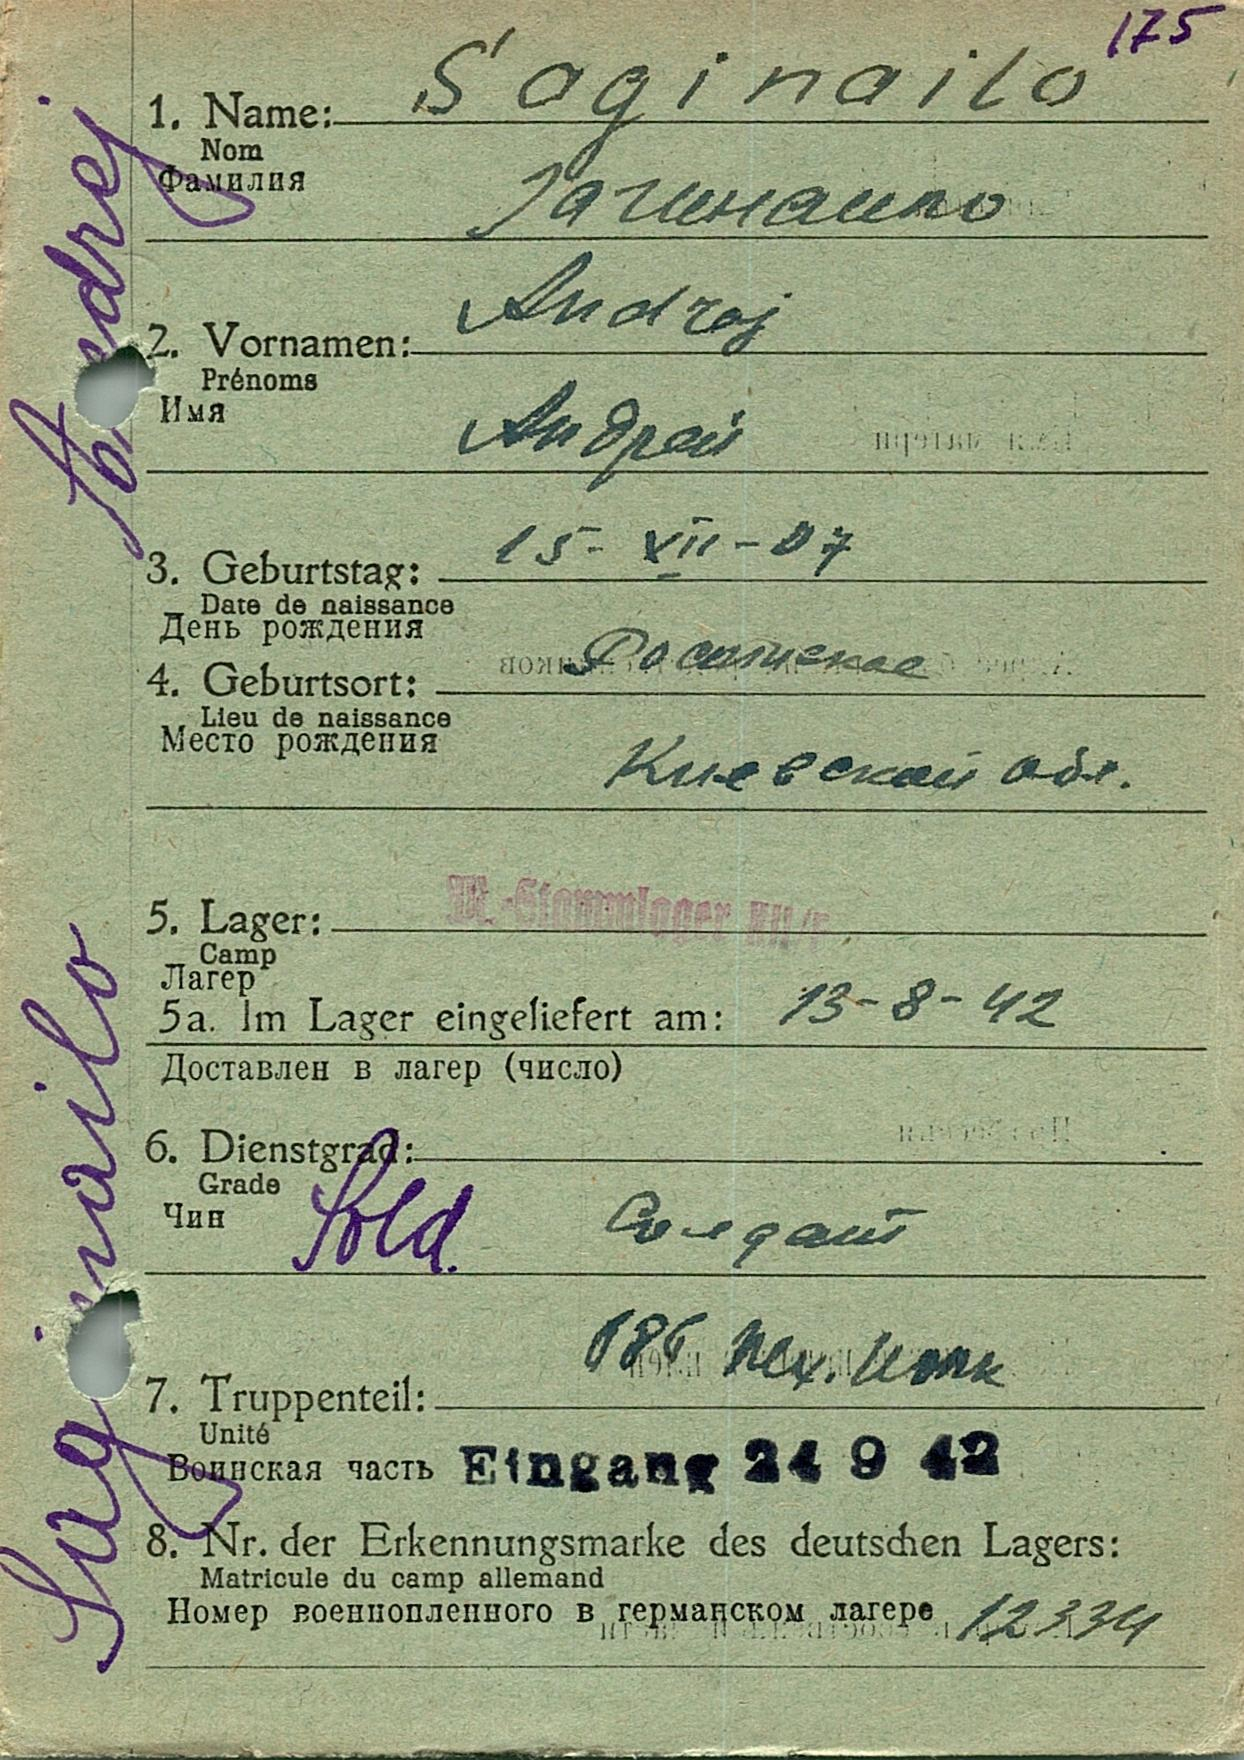 175
1. Name: Saginailo
Nom
Фамилия
Загинаило
2. Vornamen: Andrej
Prénoms
Имя
Андрей
3. Geburtstag: 15-XII-07
Date de naissance
День рождения
4. Geburtsort:
Lieu de naissance
Место рождения
Киевской обл.
5. Lager: M.-Stammlager
Camp
Лагер
5a. Im Lager eingeliefert am: 13-8-42
Доставлен в лагер (число)
6. Dienstgrad:
Grade
Чин
Sold. Солдат
7. Truppenteil: 186
Unité
Воинская часть Eingang 24 9 42
8. Nr. der Erkennungsmarke des deutschen Lagers:
Matricule du camp allemand
Номер военнопленного в германском лагере 12334
Saginailo Andrej